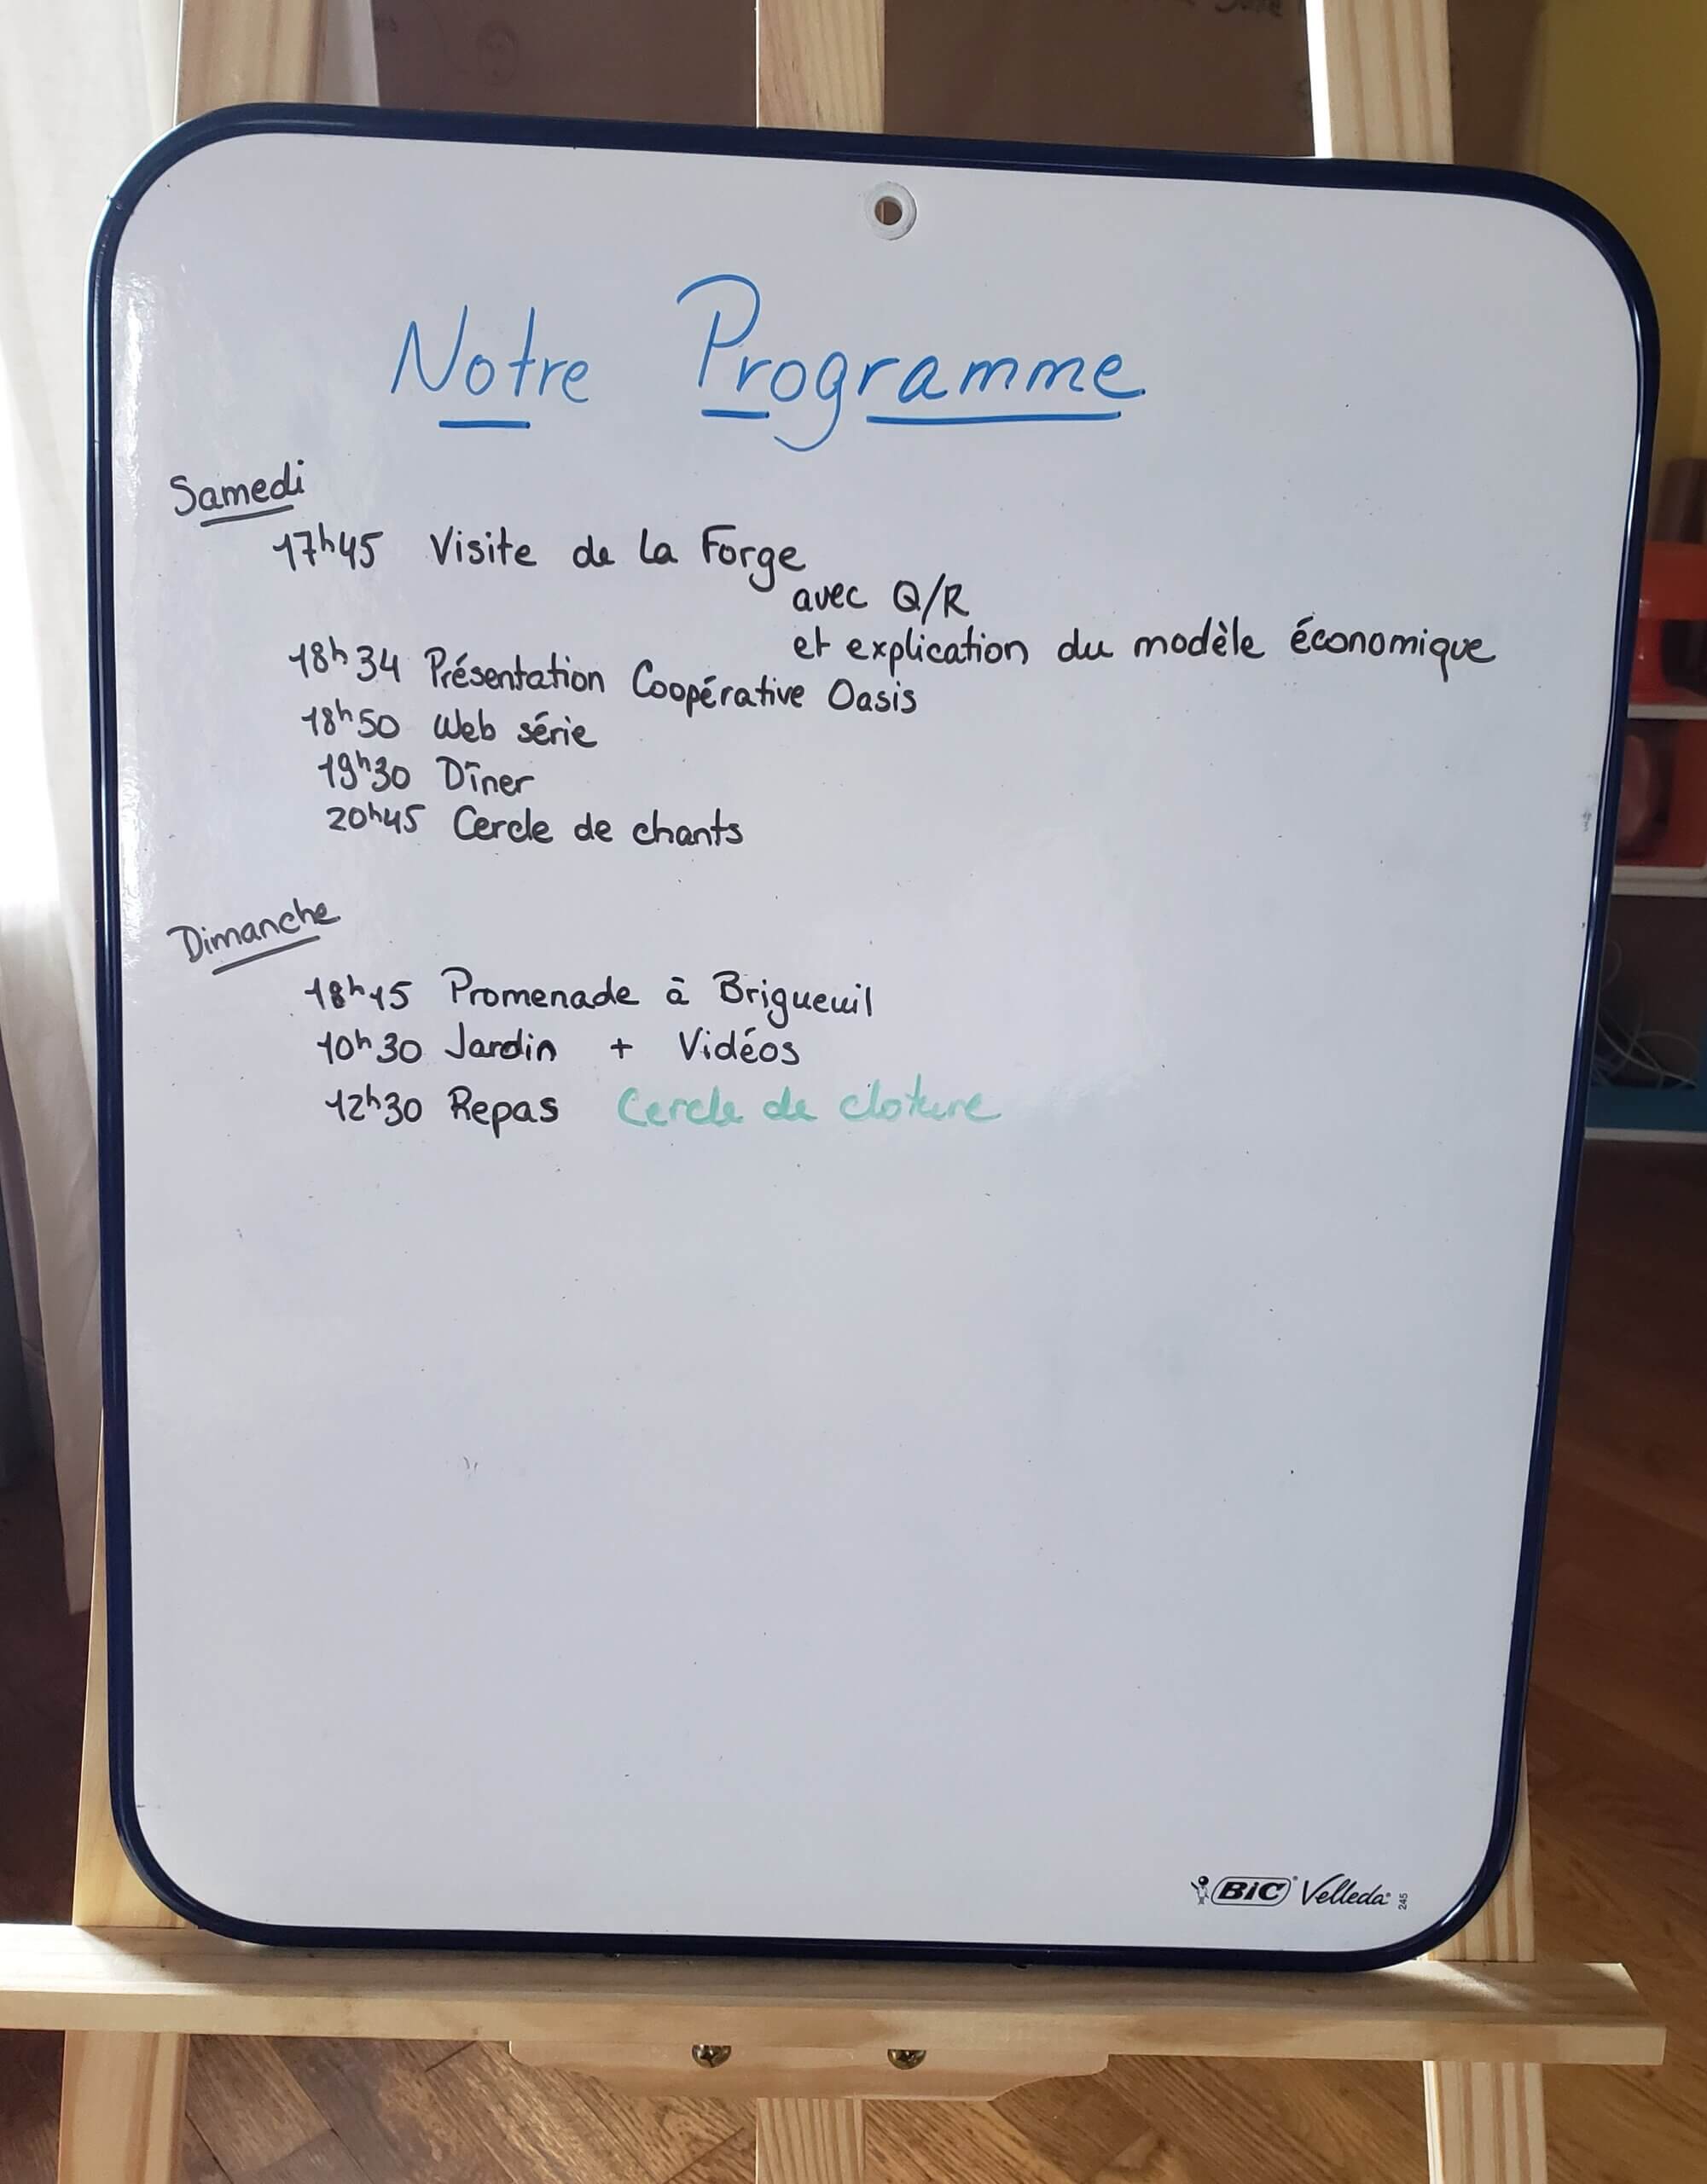 Notre Programme
Samedi
17h45 Visite de la Forge
avec Q/R
et explication du modèle économique
18h34 Présentation Coopérative Oasis
18h50 Web série
19h30 Dîner
20h45 Cercle de chants
Dimanche
18h15 Promenade à Brigueuil
10h30 Jardin + Vidéos
12h30 Repas Cercle de cloture
BIC Velleda 245